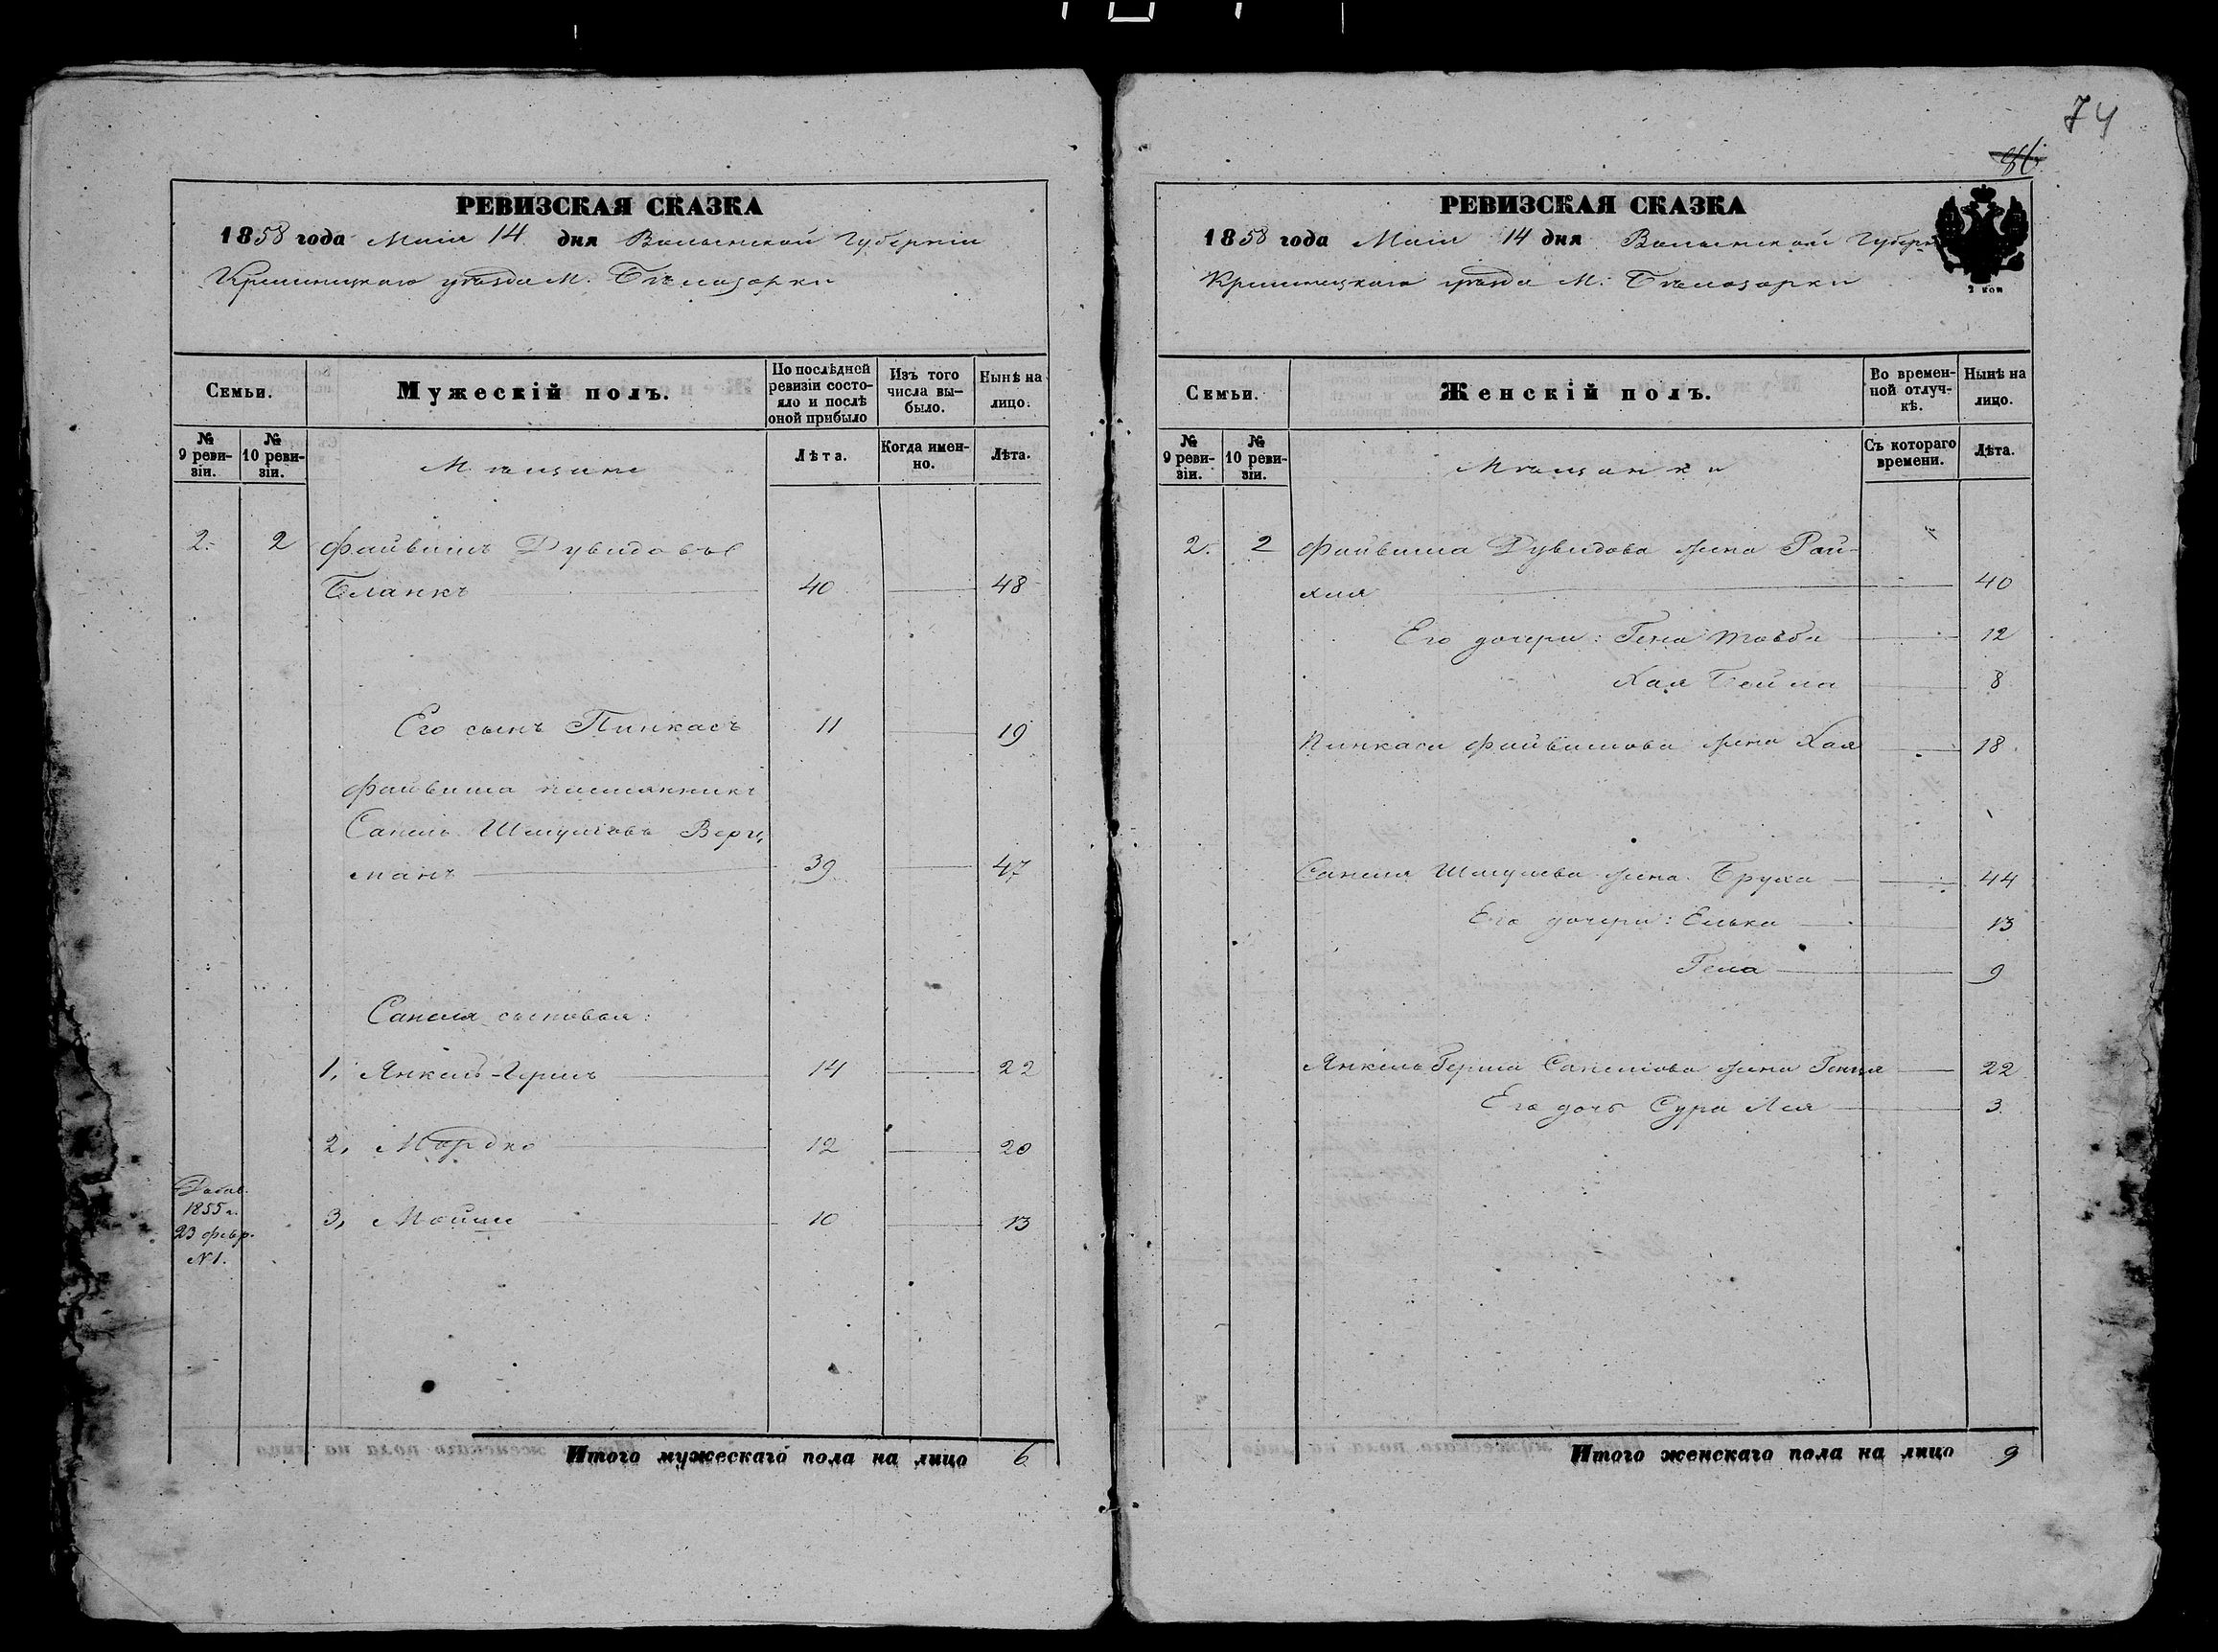 74
86.
РЕВИЗСКАЯ СКАЗКА
1858 года Маія 14 дня Волынской Губерніи
Кременецкаго уѣзда М. Бѣлозорки
Семьи.
Мужескій полъ.
По послѣдней ревизіи состояло и послѣ оной прибыло
Изъ того числа выбыло.
Нынѣ на лицо.
№ 9 ревизіи.
№ 10 ревизіи.
Мѣщане
Лѣта.
Когда именно.
Лѣта.
2. 2 Файвишъ Дувидовъ
Бланкъ 40 48
Его сынъ Пинкасъ 11 19
Файвиша племянникъ
Санель Шмулевъ Верц,
манъ 39 47
Санеля сыновья:
1, Янкель-Гершъ 14 22
2, Мордко 12 20
Добав.
1855 г.
23 февр.
№1.
3, Мойше 10 13
Итого мужескаго пола на лицо 6
РЕВИЗСКАЯ СКАЗКА
1858 года Маія 14 дня Волынской Губерн
Кременецкаго уѣзда М. Бѣлозорки
2 коп
Семьи.
Женскій полъ.
Во временной отлучкѣ.
Нынѣ на лицо.
№ 9 ревизіи.
№ 10 ревизіи.
Мѣщанки
Съ котораго времени.
Лѣта.
2. 2 Файвиша Дувидова жена Рай-
хля 40
Его дочери: Гена Товба 12
Хая Бейла 8
Пинкаса Файвишова жена Хая 18
Санеля Шмулева жена Бруха 44
Его дочери: Елька 13
Гела 9
Янкель Герша Санелева жена Геня 22
Его дочь Сура Лея 3
Итого женскаго пола на лицо 9